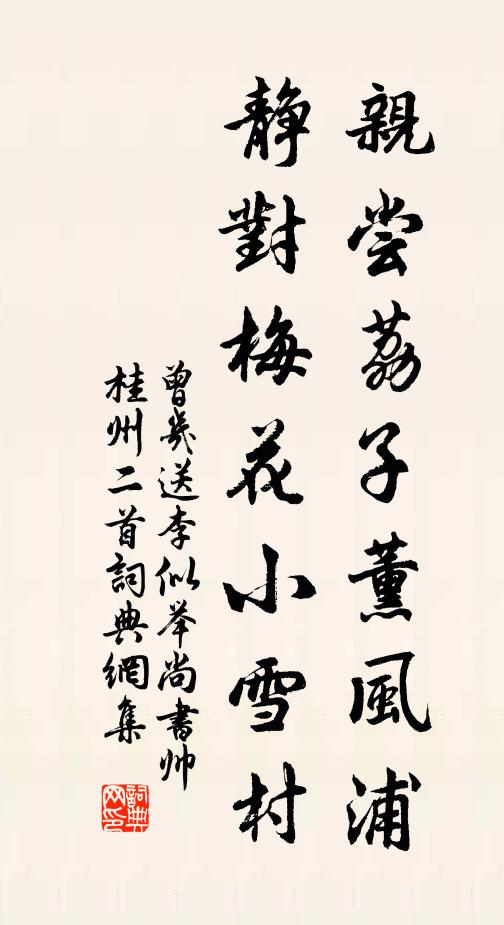 親尝荔子薰風浦
靜對梅花小雪村
曾幾送李似举尚書帅
桂州二首詞典網集
詞典
网印